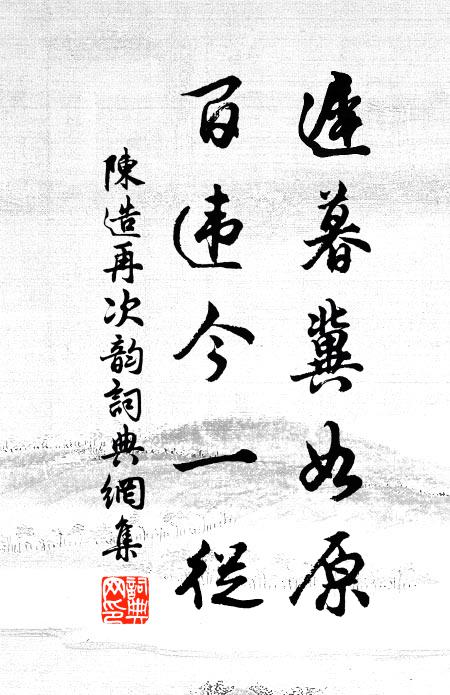 遲暮冀如原
百违今一從
陳造再次韵詞典網集
詞典网印